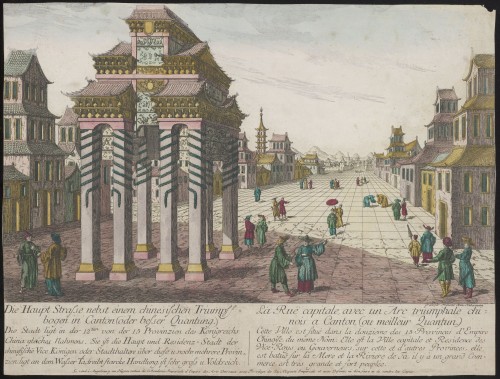 Die Haupt Straße nebst einem chinesischen Trumpf
bogen in Canton (oder beßer Quantung.)
Die Stadt ligt in der 12ten von der 15 Provinzien des Königreichs
China gleiches Nahmens. Sie ist die Haupt und Residenz-Stadt der
chinesische Vice Königen oder Stadthalter über diese u: noch mehrere
Sie ligt an dem Waßer Handlung ist sehr groß u: Volckreich.
La Ruë capitale avec un Arc triumphale chi-
nois a Canton (ou meilleur Quantun)
Cette Ville est situé dans la douzieme des 15 Provinces d'Empire
Chinois du meme Nom. Elle est la Ville capitale et Residence des
Vice-Rois, ou Gouverneurs sur cette et d'autres Provinces, elle
est batié sur la Mere et la Riviere de Ta, il y a un grand Com-
merce, est tres grande et fort peuplée.